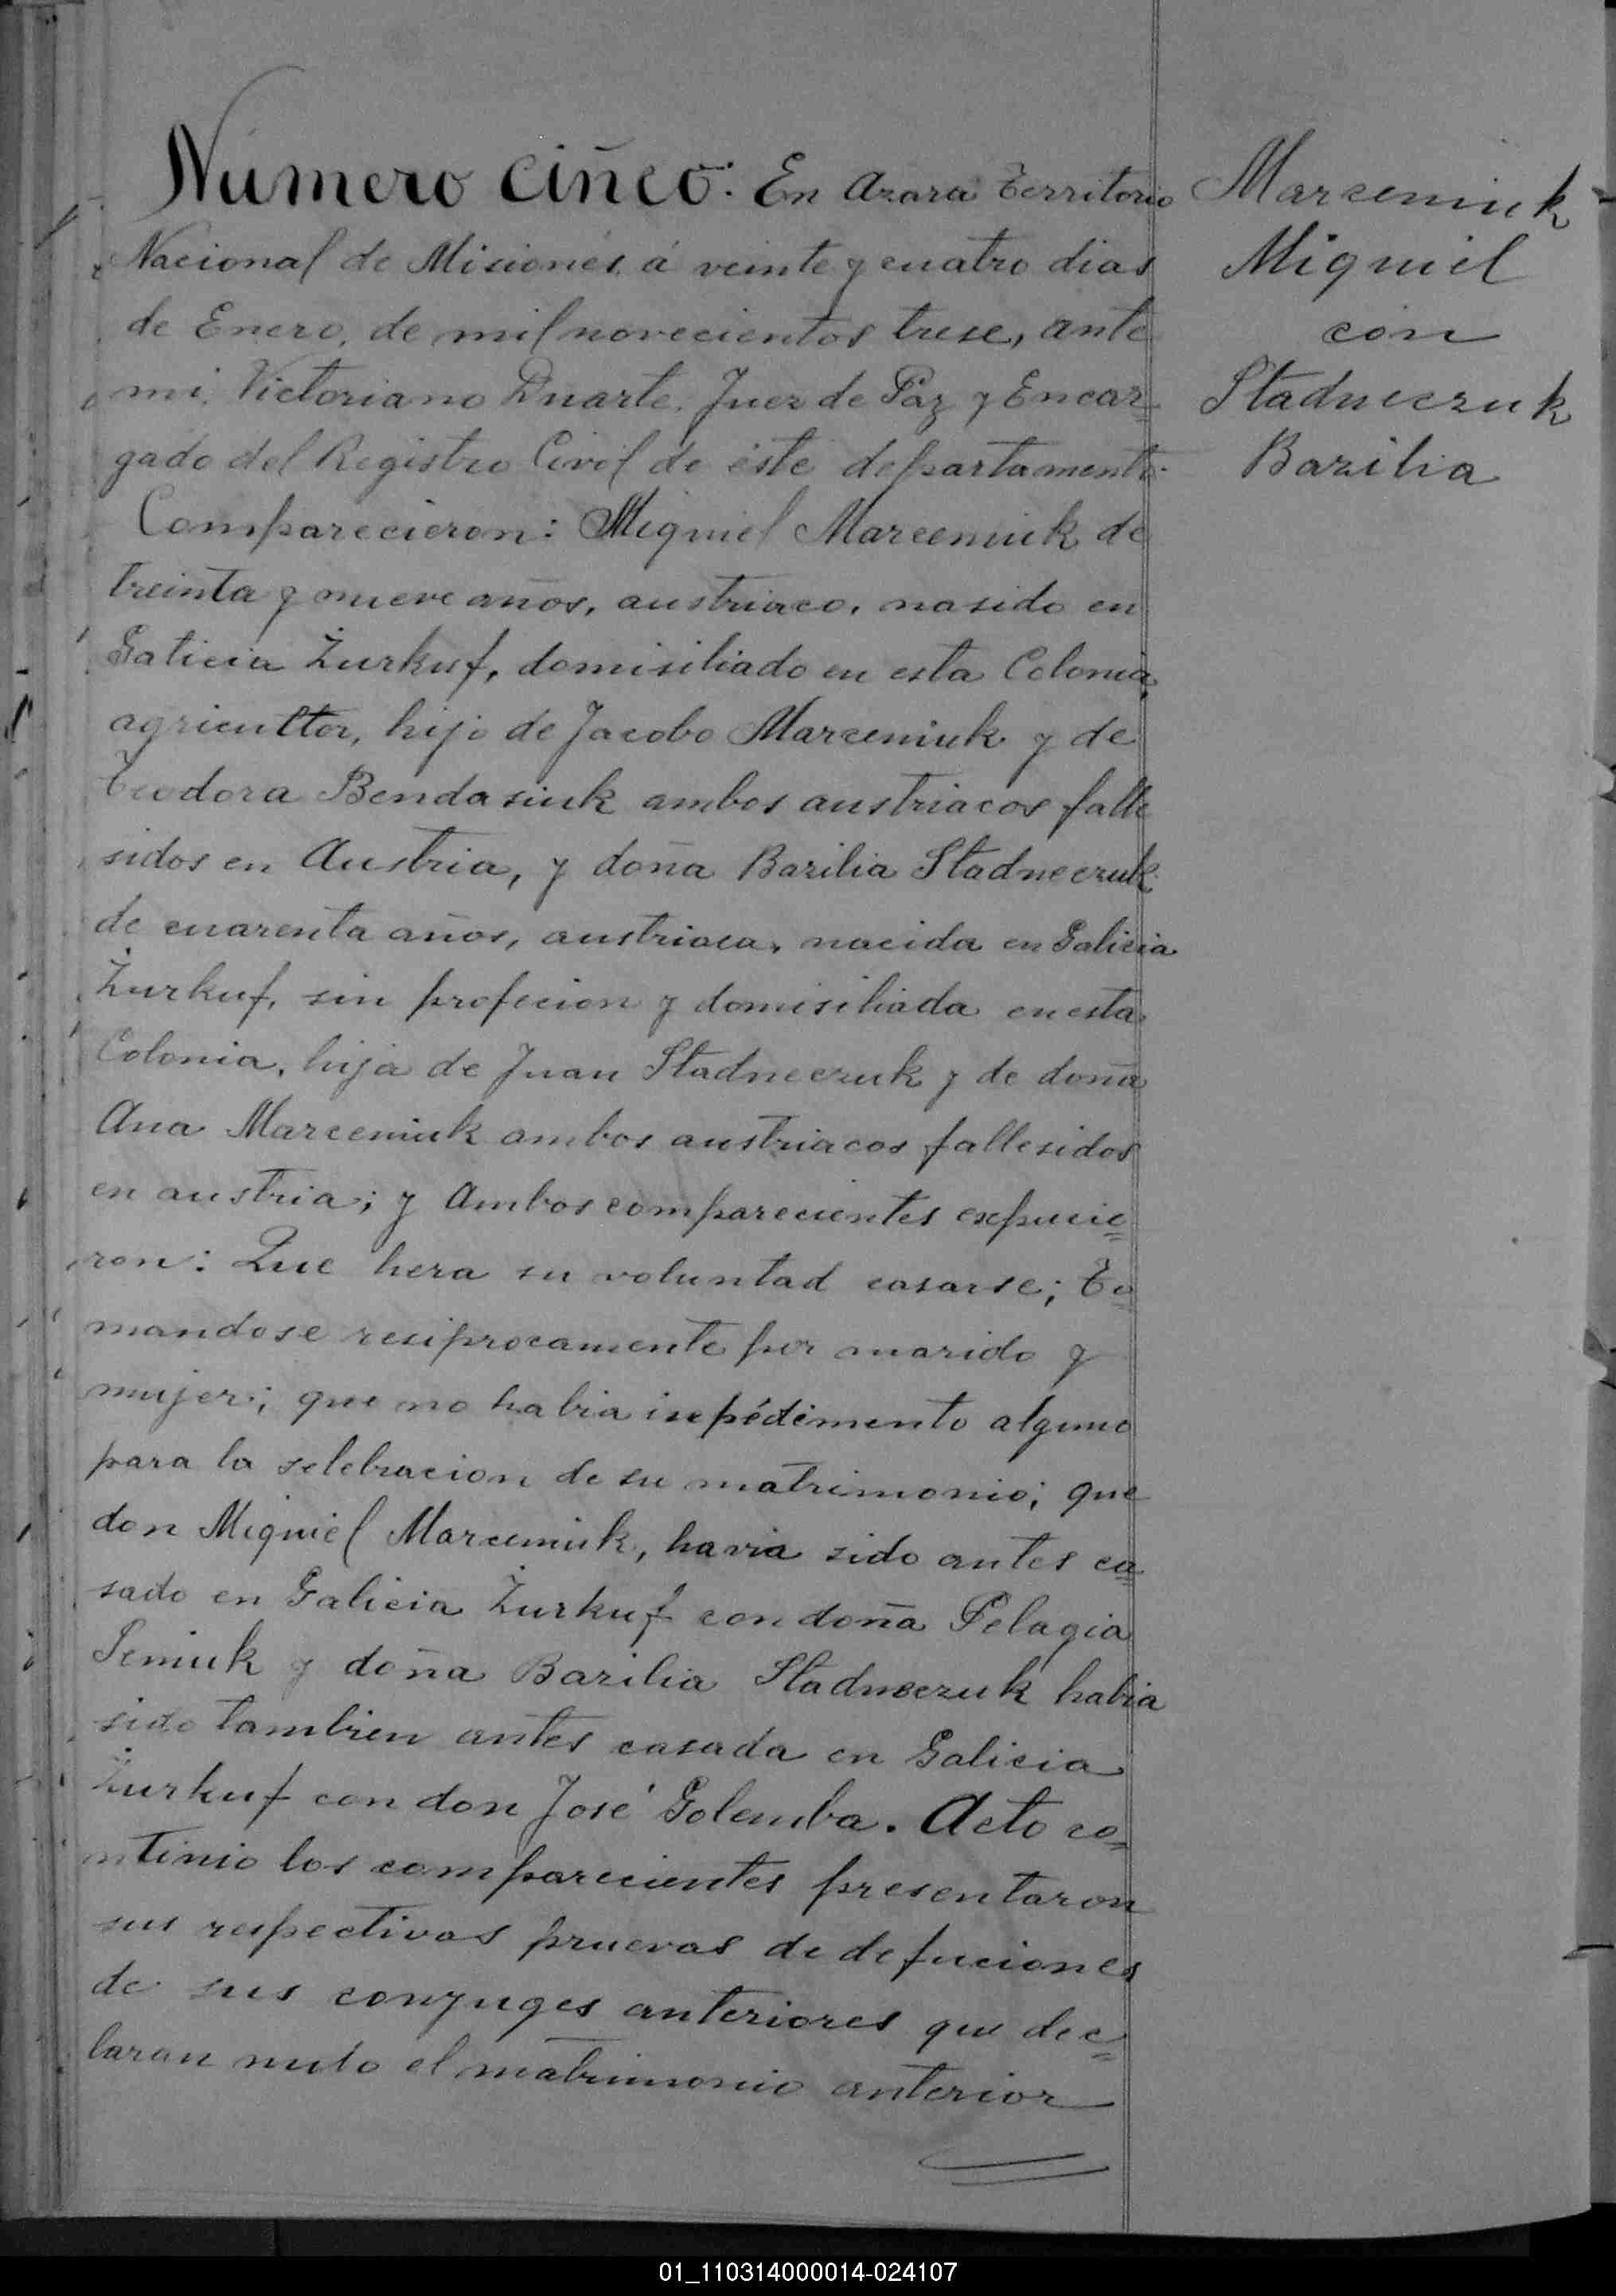 Número cinco. En Azara Territorio
Nacional de Misiones, á veinte y cuatro dias
de Enero, de mil novecientos trese, ante
mi, Victoriano Duarte, Juez de Paz y Encar-
gado del Registro Civil de éste departamento.
Comparecieron: Miguiel Marceniuk de
treinta y nueve años, austriaco, nasido en
Galicia Żurkuf, domisiliado en esta Colonia,
agricultor, hijo de Jacobo Marceniuk y de
Teodora Bendasiuk ambos austriacos falle
sidos en Austria, y doña Bazilia Stadneczuk
de cuarenta años, austriaca, nacida en Galicia
Żurkuf, sin profecion y domisiliada en esta
Colonia, hija de Juan Stadneczuk y de doña
Ana Marceniuk ambos austriacos fallesidos
en austria; y Ambos comparecientes expucie=
ron: Que hera su voluntad casarse; To=
mandose resiprocamente por marido y
mujer; que no habia inpédimento alguno
para la selebracion de su matrimonio; que
don Miguiel Marceniuk, havia sido antes ca=
sado en Galicia Żurkuf con doña Pelagia
Seniuk y doña Bazilia Stadneczuk habia
sido tambien antes casada en Galicia
Żurkuf con don José Golemba. Acto co=
ntinio los comparecientes presentaron
sus respectivas pruevas de defuciones
de sus conyuges anteriores que dec=
laran nulo el matrimonio anterior
Marceniuk
Miguiel
con
Stadneczuk
Bazilia
01_110314000014-024107